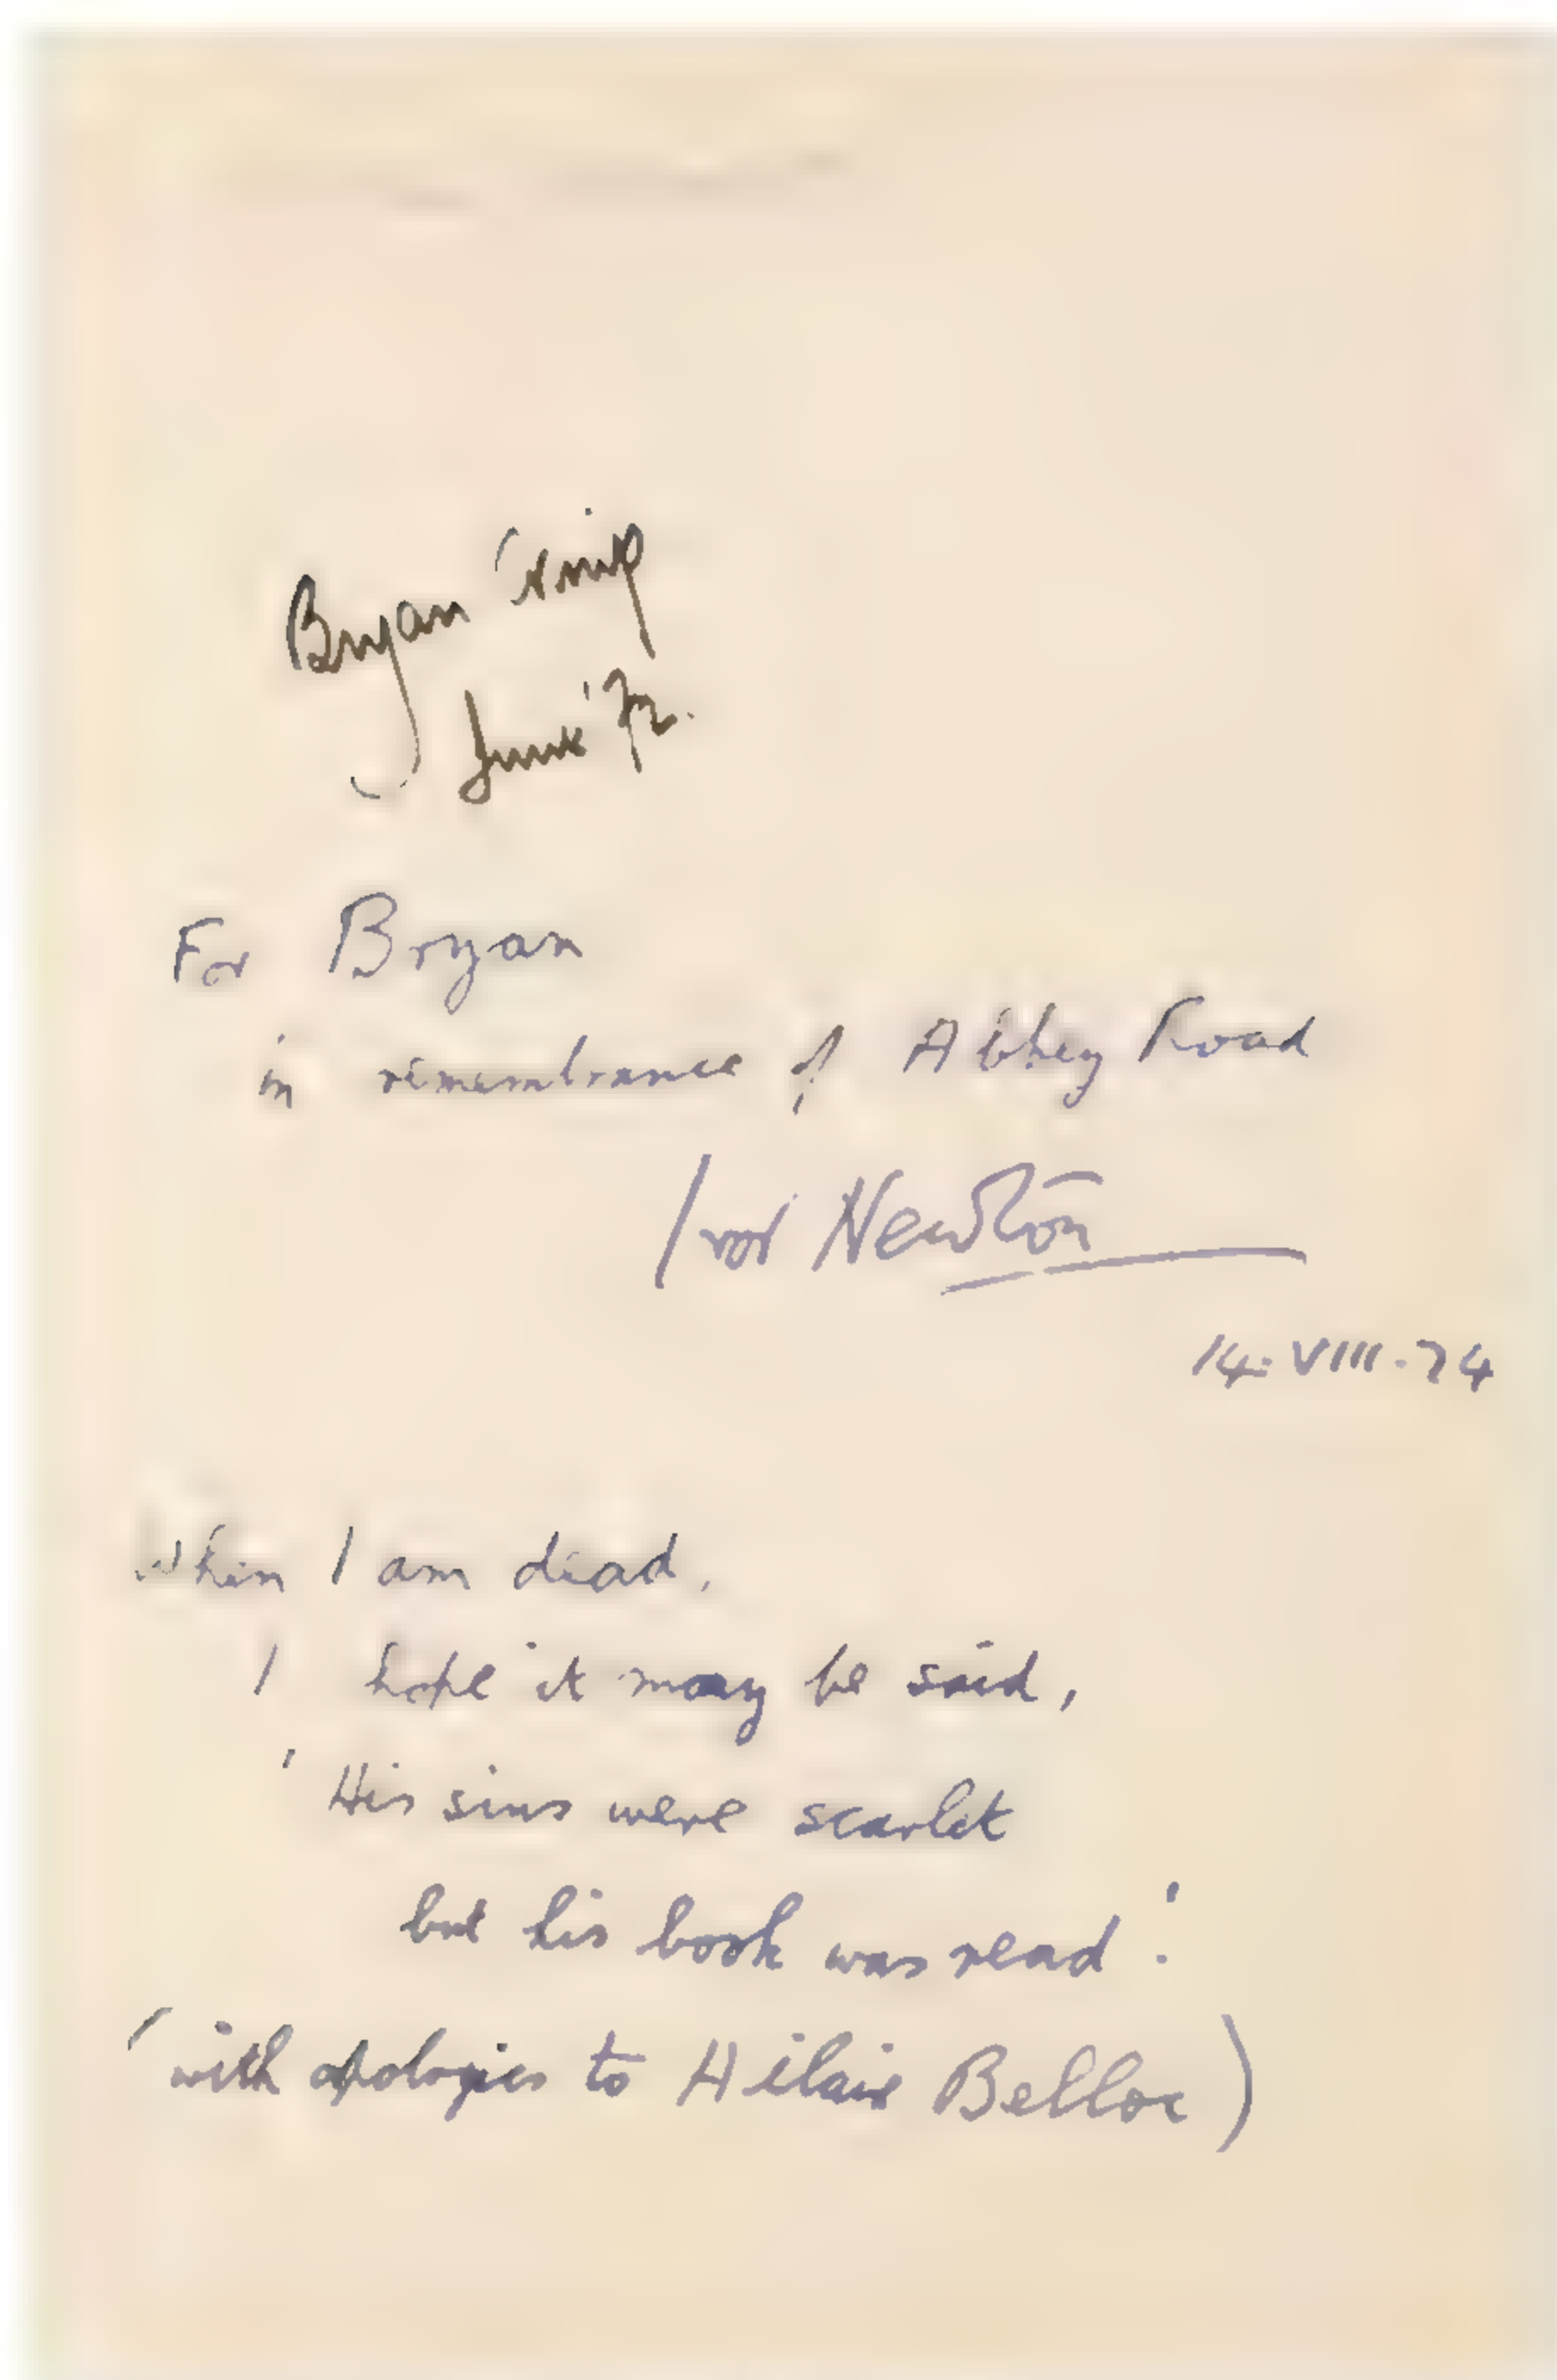 Bryan
June '72.
For Bryan
in remembrance of Abbey Road
Ivor Newton
14.VIII.74
When I am dead,
I hope it may be said,
'His sins were scarlet
but his book was read'.
(with apologies to Hilaire Belloc)